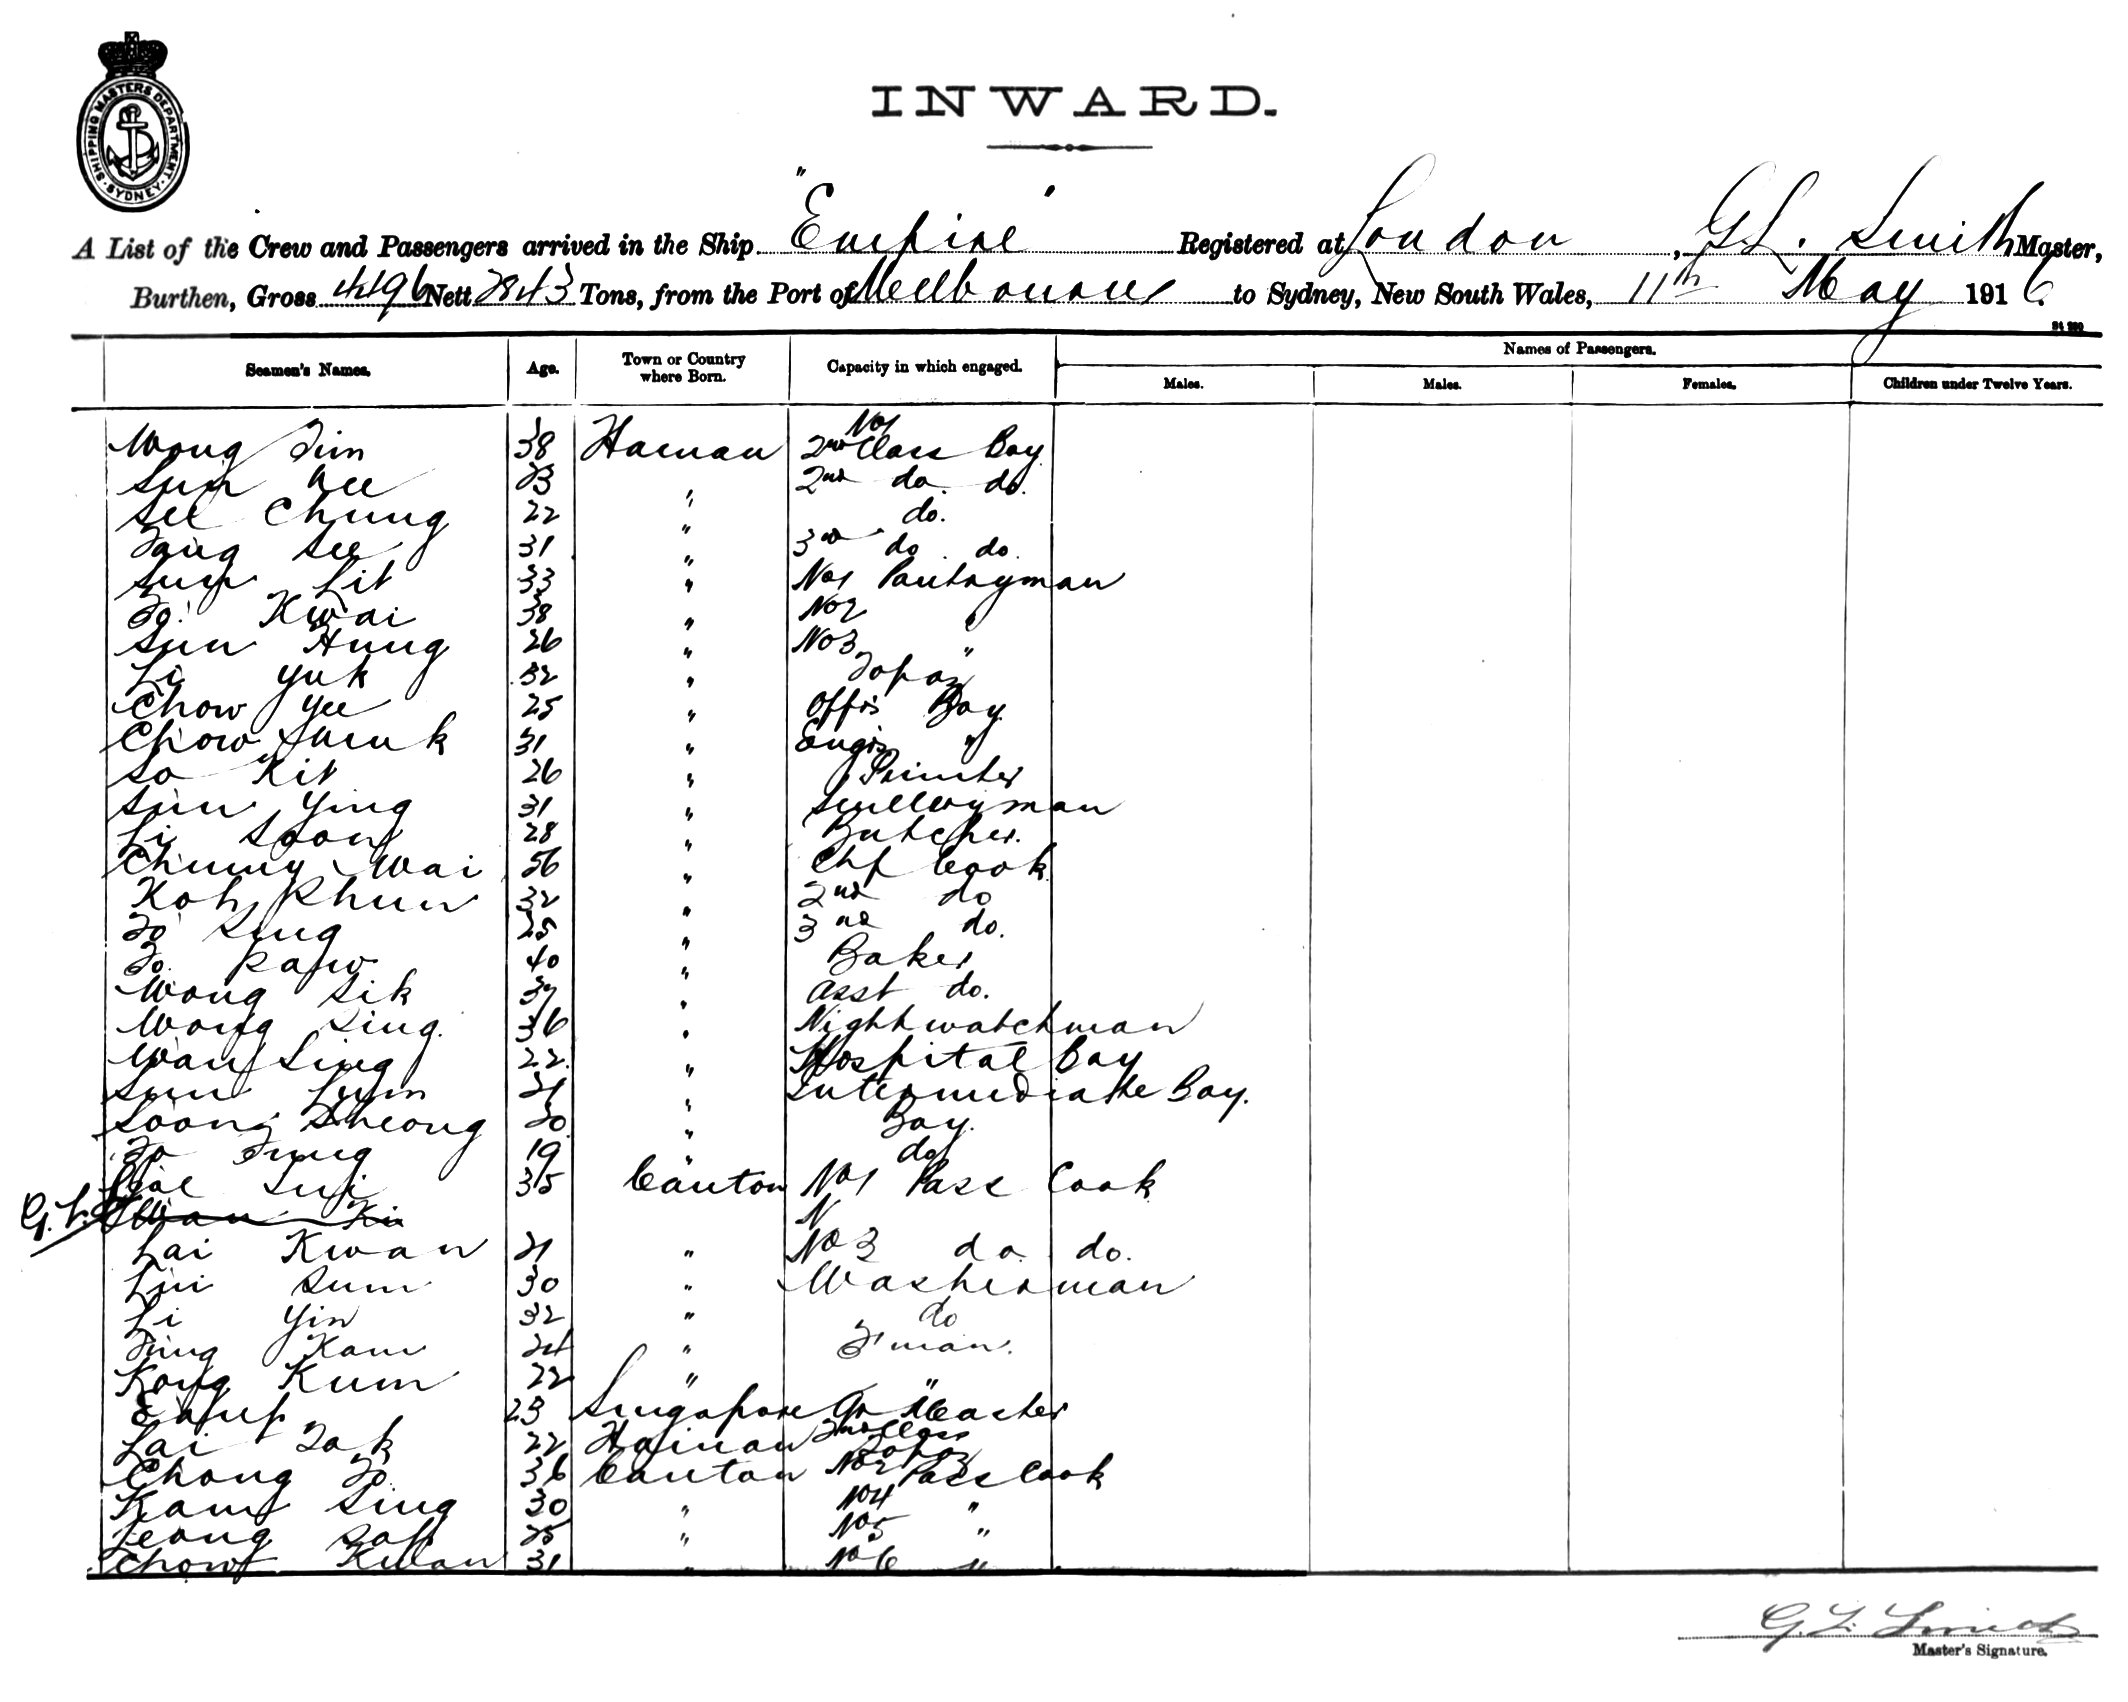 SHIPPING MASTERS DEPARTMENT. SYDNEY.
INWARD.
A List of the Crew and Passengers arrived in the Ship "Empire" Registered at London, G.L. Smith Master,
Burthen, Gross 4496 Nett 2843 Tons, from the Port of Melbourne to Sydney, New South Wales, 11th May 1916
Names of Passengers.
Seamen's Names. Age. Town or Country where Born. Capacity in which engaged. Males. Males. Females. Children under Twelve Years.
Wong Tim 38 Hainan No1 2nd Class Boy
Sun Wee 23 " 2nd do. do.
See Chung 22 " do.
Tang See 31 " 3rd do do.
Sum Lit 33 " No1 Pantryman
To Kwai 38 " No2 "
Sun Hung 26 " No3 "
Li Yuk 32 " Topaz
Chow Yee 25 " Offrs Boy
Chow 31 " Engrs "
So Kit 26 " Printer
Sun Ying 31 " Sculleryman
Li Soon 28 " Butcher.
Chung Wai 56 " Chf Cook
Koh Khun 32 " 2nd do
To Sing 25 " 3rd do.
To 40 " Baker
Wong Sik 37 " Asst do.
Wong Sing. 36 " Nightwatchman
Wan Sing 22. " Hospital Boy
Sun 21 " Intermediate Boy.
Soong Sheong 20 " Boy.
To Tung 19 " do
Sui 35 Canton No1 Pass Cook
G.L.S. Wan Ki N
Lai Kwan 21 " No 3 do do.
Lui Sum 30 " Washerman
Li Yin 32 " do
Ting Kam 24 " F'man.
Kong Kum 22 " "
23 Singapore
Lai Tak 22 Hainan 2nd Class Topaz
Chong To 36 Canton No2 Pass Cook
Kam Sing 30 " No4 "
Leong 25 " No5 "
Chow Kwan 31 " No6 "
G. L. Smith
Master's Signature.